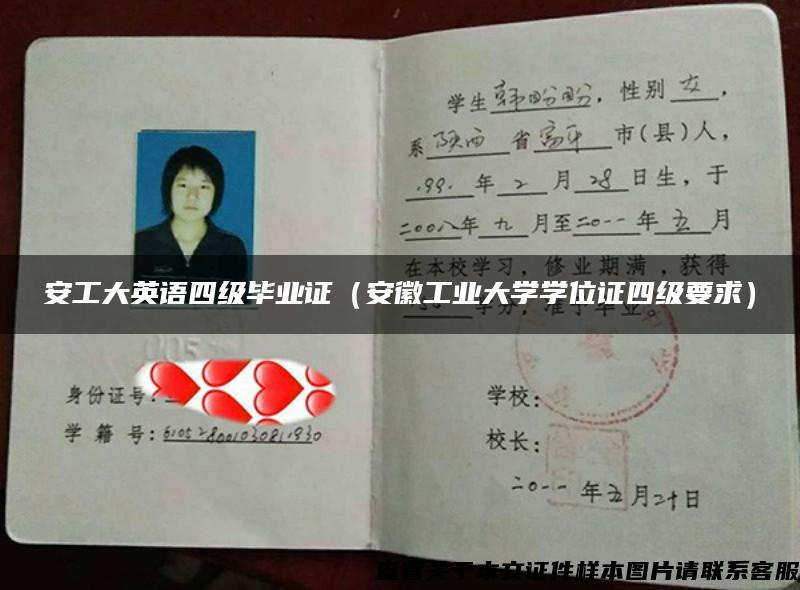 学生韩盼盼，性别女，
系陕西省富平市(县)人，
1991年2月28日生，于
二〇〇八年九月至二〇一一年五月
在本校学习，修业期满，获得
安工大英语四级毕业证（安徽工业大学学位证四级要求）
学分，准予毕业。
005
身份证号：
学籍号：610528001030811930
学校：
校长：
二〇一一年五月二十日
查看关于本文证件样本图片请联系客服